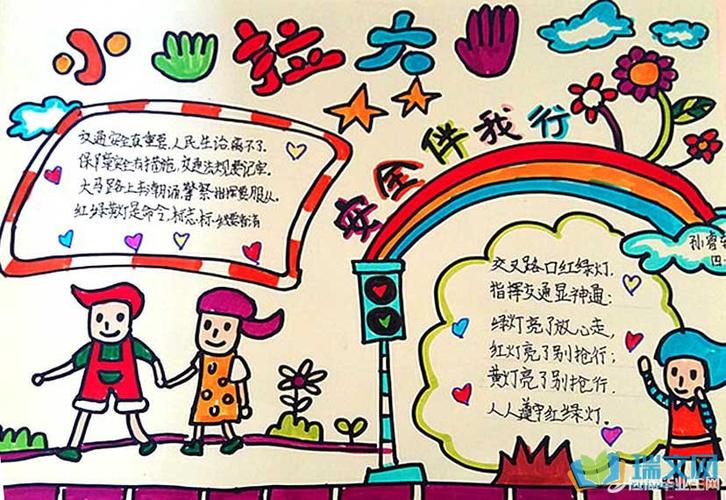 小拉大
安全伴我行
交通安全在重要,人民生活离不了.
保障安全有措施,交通法规要记牢.
大马路上,警察指挥要服从.
红绿黄灯是命令,标志标线要看清
孙睿
四
交叉路口红绿灯.
指挥交通显神通:
绿灯亮了放心走,
红灯亮了别抢行;
黄灯亮了别抢行.
人人遵守红绿灯.
瑞文网
毕业生网